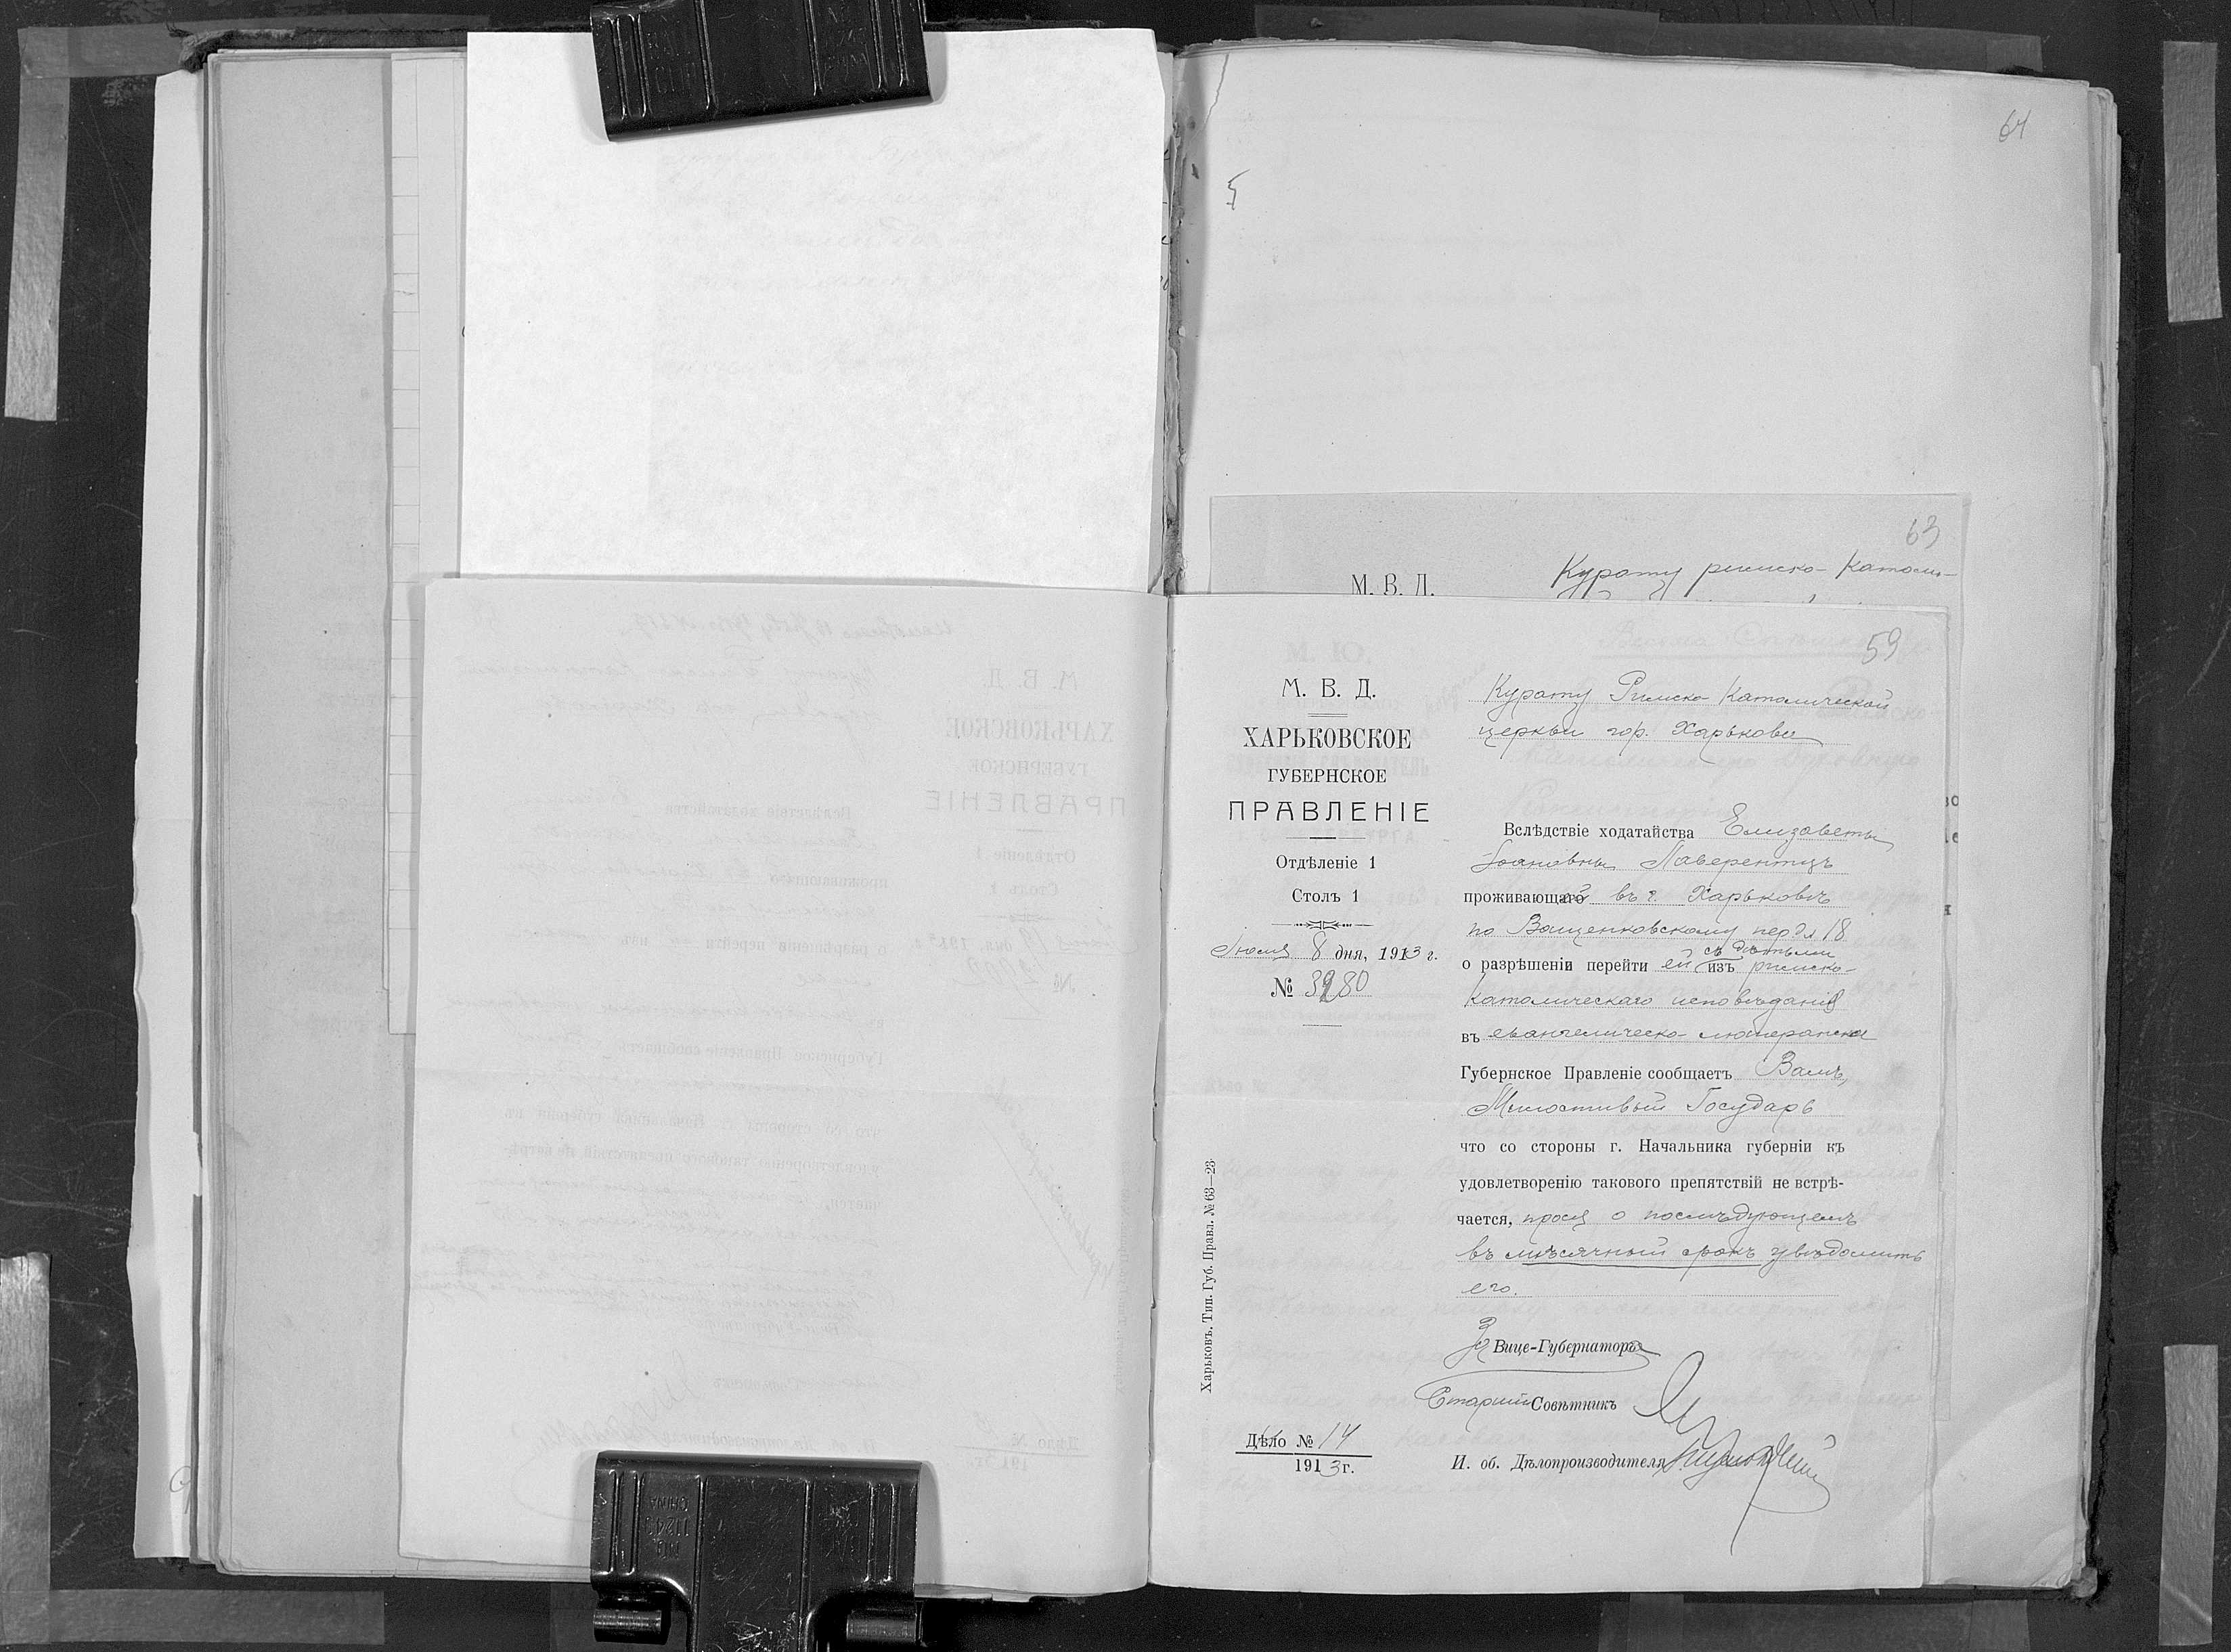 64
63
М. В. Д.
Курату римско-католи-
59
М. В. Д.
ХАРЬКОВСКОЕ
ГУБЕРНСКОЕ
ПРАВЛЕНІЕ
Отдѣленіе 1
Столъ 1
Іюля 8 дня, 1913 г.
№ 3980
Харьковъ. Тип. Губ. Правл. № 63—23
Дѣло № 14
1913 г.
Курату Римско Католической
церкви гор. Харькова
Вслѣдствіе ходатайства Елизаветы
Іоановны Лаверентцъ
проживающей въ г. Харьковѣ
по Ващенковскому пер д 18
съ дѣтьми
о разрѣшеніи перейти ей изъ римско-
католическаго исповѣданія
въ евангелическо-лютеранское
Губернское Правленіе сообщаетъ Вамъ,
Милостивый Государь
что со стороны г. Начальника губерніи къ
удовлетворенію такового препятствій не встрѣ-
чается, прося о послѣдующемъ
въ мѣсячный срокъ увѣдомить
его.
За Вице-Губернатора
Старшій Совѣтникъ
И. об. Дѣлопроизводителя